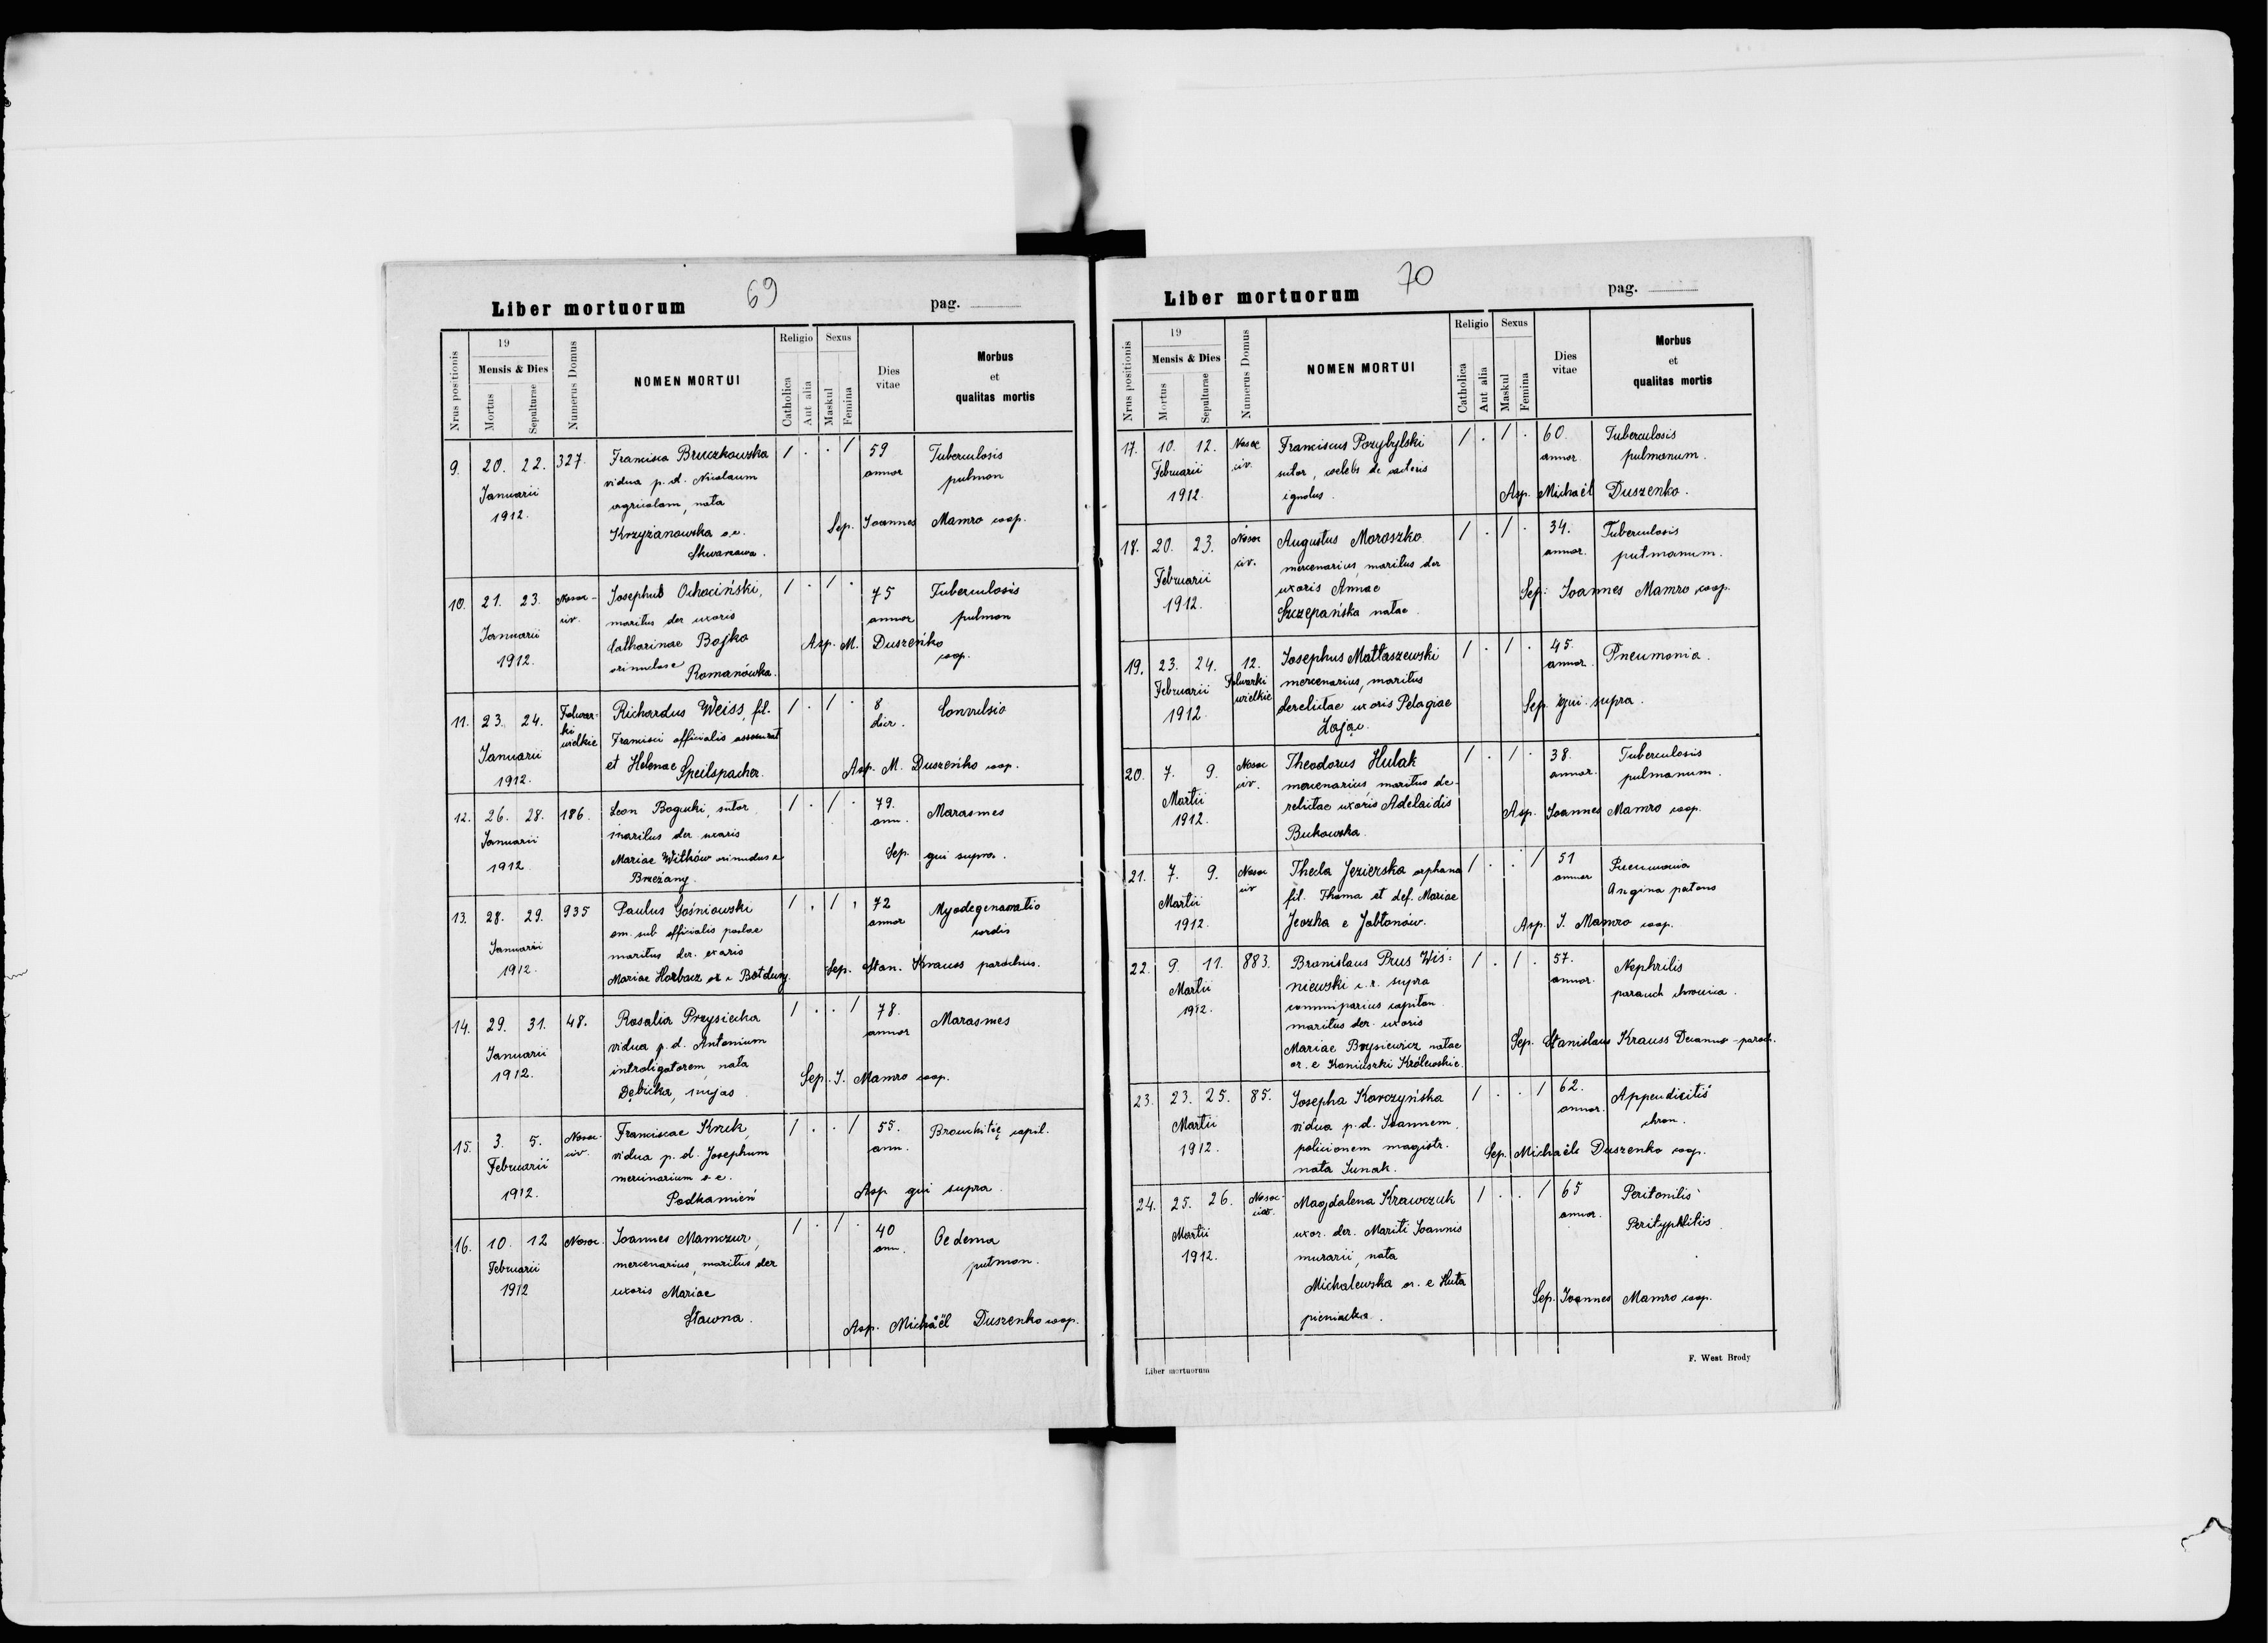 Liber mortuorum 69 pag.
Nrus positionis 19 Mensis & Dies Mortus Sepulturae Numerus Domus NOMEN MORTUI Religio Catholica Aut alia Sexus Maskul Femina Dies vitae Morbus et qualitas mortis
9. 20. 22. 327. Francisca Bruczkowska 1 . . 1 59 Tuberculosis
Januarii vidua p. d. Nicolaum annor pulmon
1912. agricolam, nata
Krzyżanowska o.e. Sep. Joannes Mamro coop.
Skwarzawa.
10. 21. 23. Nosoc- Josephus Ochociński, 1 . 1 . 75 Tuberculosis
civ. maritus der uxoris annor pulmon
Januarii Catharinae Bojko Asp. M. Duszeńko
1912. Romanówka. coop.
11. 23. 24. Folwar- Richardus Weiss, fil. 1 . 1 . 8 Convulsio
ki Francisci officialis assecurat dier.
Januarii wielkie et Helenae Speilspacher. Asp. M. Duszeńko coop.
1912.
12. 26. 28. 186. Leon Bogucki, sutor 1 . 1 . 79. Marasmes
Januarii maritus der uxoris ann.
1912 Mariae Witków oriundus e Sep. qui supra.
Brzeżany.
13. 28. 29. 935 Paulus Gośniowski 1 . 1 . 72 Myodegenaratio
em. sub officialis postae annor cordis
Januarii maritus der. uxoris
1912. Mariae Horbacz or e Batdury. Sep. Stan. Krauss parochus.
14. 29. 31. 48. Rosalia Przysiecka 1 . . 1 78. Marasmes
Januarii vidua p. d. Antonium annor
1912. introligatorem, nata
Dębicka, Sep. J. Mamro coop.
15. 3. 5. Nosoc- Franciscae Kruk, 1 . . 1 55. Bronchitię capil.
civ. vidua p. d. Josephum ann.
Februarii mercinarium o e.
1912. Podkamień Asp qui supra.
16. 10. 12 Nosoc. Joannes Mamczur, 1 . 1 . 40 Oedema
Februarii mercenarius, maritus der ann. pulmon.
1912 uxoris Mariae
Sławna. Asp. Michäël Duszenko coop.
Liber mortuorum 70 pag.
Nrus positionis 19 Mensis & Dies Mortus Sepulturae Numerus Domus NOMEN MORTUI Religio Catholica Aut alia Sexus Maskul Femina Dies vitae Morbus et qualitas mortis
17. 10. 12. Nosoc Franciscus Pozybylski 1 . 1 . 60. Tuberculosis
Februarii civ. sutor, coelebs de caeteris annor. pulmonum.
1912. ignotus. Asp. Michaël Duszenko.
18. 20. 23. Nosoc Augustus Moroszko 1 . 1 . 34. Tuberculosis
civ. mercenarius, maritus der annor. pulmonum.
Februarii uxoris Annae Sep. Joannes Mamro coop.
1912. Szczepańska natae.
19. 23. 24. 12. Josephus Małtaszewski 1 . 1 . 45. Pneumonia.
Februarii Folwarki mercenarius, maritus annor.
wielkie derelictae uxoris Pelagiae Sep. qui supra.
1912. Zając.
20. 7. 9. Nosoc Theodorus Hulak 1 . 1 . 38. Tuberculosis
civ. mercenarius, maritus de- annor. pulmonum.
Martii relictae uxoris Adelaidis Asp. Joannes Mamro coop.
1912. Bukowska.
21. 7. 9. Nosoc Thecla Jezierska orphana 1 . . 1 51 Pneumonia
civ fil. Thoma et def. Mariae annor Angina
Martii
1912. e Jabłonów. Asp. J. Mamro coop.
22. 9. 11. 883. Bronislaus Prus Wiś= 1 . 1 . 57. Nephritis
Martii niewski c. r. supra annor. chronica.
1912. capitan
maritus der. uxoris
Mariae Brysiewicz natae Sep. Stanislaus Krauss Decanus - paroch.
or. e Koniuszki Królewskie.
23. 23. 25. 85. Josepha Korczyńska 1 . . 1 62. Appendicitis
Martii vidua p. d. Joannem, annor. chron.
1912. policionem magistr. Sep. Michaële Duszenko coop.
nata Sunak.
24. 25. 26. Nosoc- Magdalena Krawczuk 1 . . 1 65 Peritonitis
civ. uxor. der. Mariti Joannis annor. Perityphlitis.
Martii murarii, nata
1912. Michalewska or. e Huta Sep. Joannes Mamro coop.
pieniacka.
Liber mortuorum F. West Brody